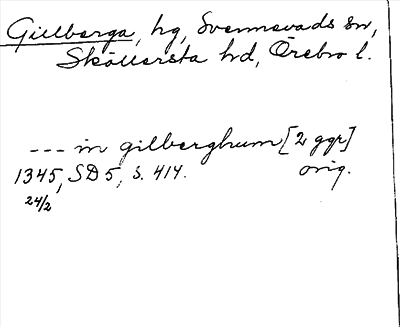 Gillberga, hg, Svennevads sn,
Sköllersta hd, Örebro l.
--- in gilberghum [2 ggr]
1345, SD 5, s. 414. orig.
24/2